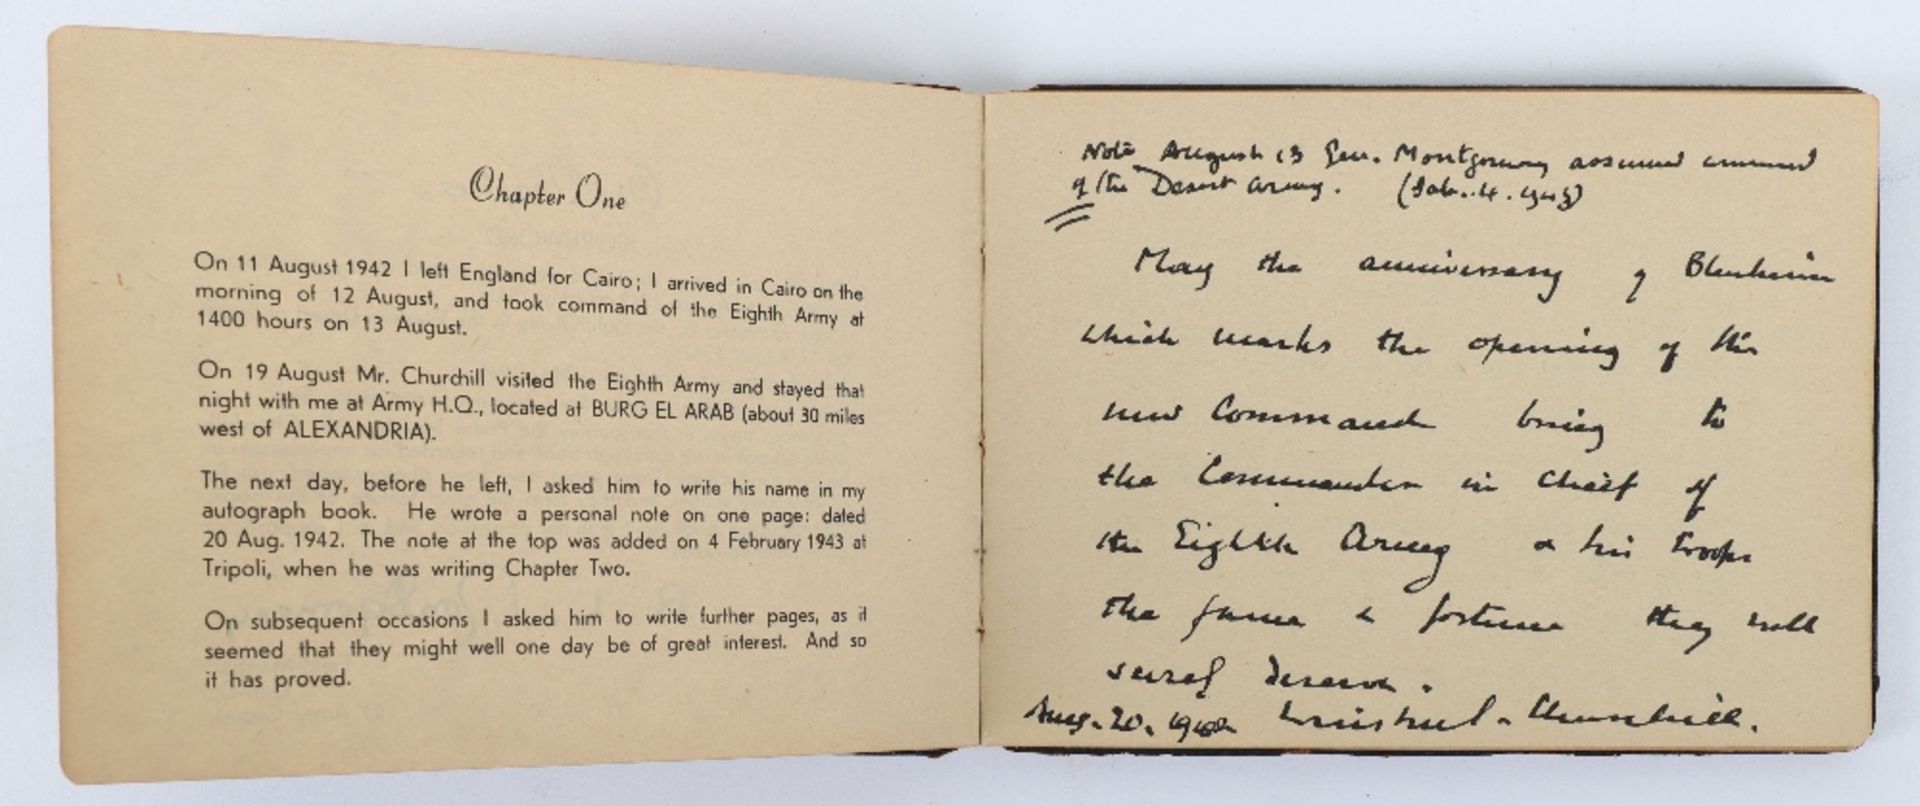 Chapter One
On 11 August 1942 I left England for Cairo; I arrived in Cairo on the
morning of 12 August, and took command of the Eighth Army at
1400 hours on 13 August.
On 19 August Mr. Churchill visited the Eighth Army and stayed that
night with me at Army H.Q., located at BURG EL ARAB (about 30 miles
west of ALEXANDRIA).
The next day, before he left, I asked him to write his name in my
autograph book. He wrote a personal note on one page: dated
20 Aug. 1942. The note at the top was added on 4 February 1943 at
Tripoli, when he was writing Chapter Two.
On subsequent occasions I asked him to write further pages, as it
seemed that they might well one day be of great interest. And so
it has proved.
Note August 13 Gen. Montgomery assumed command
of the Desert Army. (Feb. 4. 1943)
May the anniversary of Blenheim
which marks the opening of the
new Command bring to
the Commander in Chief of
the Eighth Army & his troops
the fame & fortune they will
surely deserve.
Aug. 20. 1942 Winston S. Churchill.